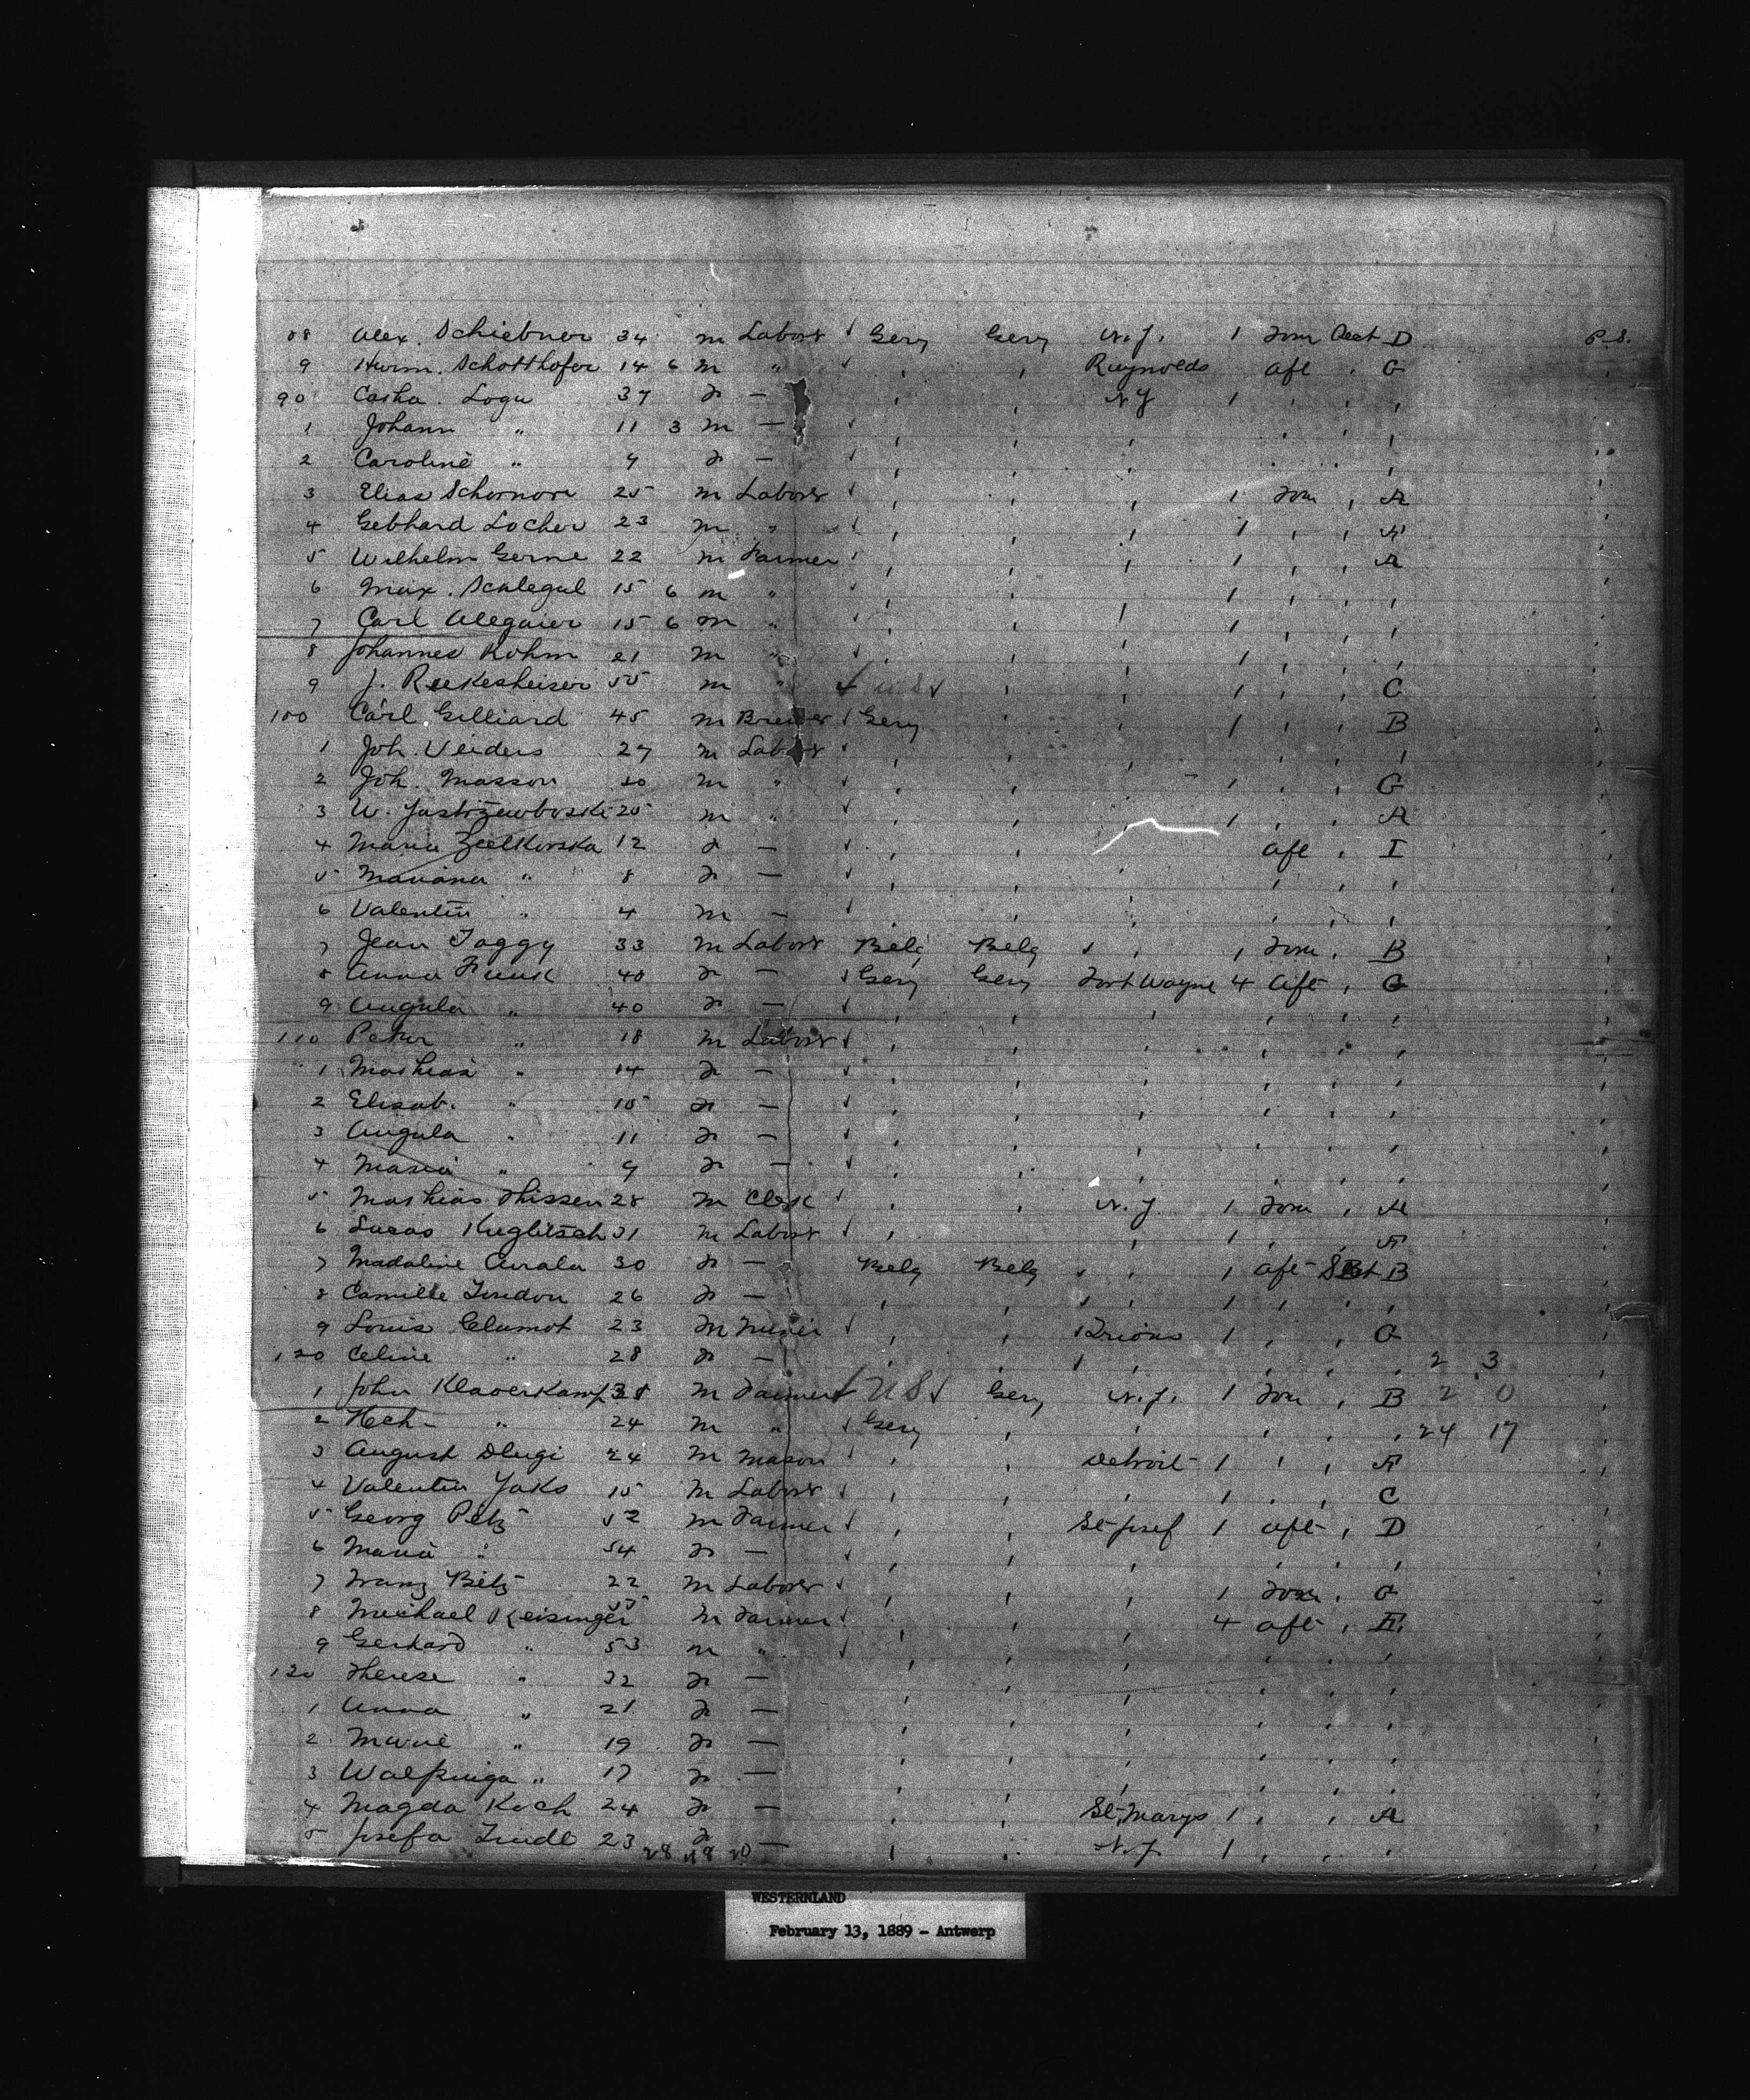 88 Alex. Schiebner 34 m Laborr √ Gery Gery N.Y. 1 For Deck D P.S.
9 Herm. Schotthofer 14 6 m " √ , , Reynolds aft , G
90 Casha. Logu 37 F — , , NY 1 , , ,
1 Johann " 11 3 m — √ , , , , , ,
2 Caroline " 9 F — √ , , , , , ,
3 Elias Schornore 25 m Laborr √ , , , 1 For , A
4 Gebhard Locher 23 m " √ , , , 1 , , A
5 Wilhelm Gerne 22 m Farmer √ , , , 1 , , A
6 Max. Scalegal 15 6 m " √ , , , 1 , , ,
7 Carl Alegaier 15 6 m " √ , , , 1 , , ,
8 Johannes Kohm 21 m " √ , , , 1 , , ,
9 J. Reekesheiser 55 m " √ U S √ , , 1 , , C
100 Carl Gilliard 45 m Brewer √ Gery , , 1 , , B
1 Joh. Veiders 27 m Laborr √ , , , , , , ,
2 Joh. Masson 30 m " √ , , , 1 , , G
3 W. Jastrzewboski 25 m " √ , , , 1 , , A
4 Maria Zielkovska 12 F — √ , , aft , I
5 Mariana " 8 F — √ , , , , , ,
6 Valentin " 4 m — √ , , , , , ,
7 Jean Taggy 33 m Laborr Belg Belg √ , 1 For , B
8 Anna Funk 40 F — √ Gery Gery Fort Wayne 4 Aft , G
9 Angula " 40 F — √ , , , , , ,
110 Peter " 18 m Laborr √ , , , , , ,
1 Mathias " 14 F — √ , , , , , ,
2 Elisab. " 15 F — √ , , , , , ,
3 Angula " 11 F — √ , , , , , ,
4 Maria " 9 F — √ , , , , , ,
5 Mathias Thissen 28 m Clerk √ , , N.Y. 1 For , A
6 Lucas Kuglitsch 31 m Laborr √ , , , 1 , , A
7 Madaline 30 F — Belg Belg √ , 1 aft B
8 Camille Tindon 26 F — , , √ , 1 , , ,
9 Louis Clamot 23 m √ , , 1 , , G
120 Celine " 28 F — , , √ , , , , 2 3
1 John Klaverkamp 38 m Farmer √ U S √ Gery N.Y. 1 For , B 2 0
2 Hch- " 24 m " √ Gery , , , , , 24 17
3 August Dlugi 24 m Mason √ , , Detroit 1 , , A
4 Valentin Jaks 15 m Laborr √ , , , 1 , , C
5 Georg Petz 52 m Farmer √ , , St Josef 1 aft , D
6 Maria " 54 F — √ , , , , , ,
7 Franz Bilz 22 m Laborr √ , , , 1 For , G
8 Michael Reisinger 55 m Farmer √ , , , 4 aft , E
9 Gerhard " 53 m " √ , , , , , ,
120 Therese " 32 F — , , , , , ,
1 Anna " 21 F — , , , , , ,
2 Marie " 19 F — , , , , , ,
3 Walpurga " 17 F — , , , , , ,
4 Magda Koch 24 F — , , St. Marys 1 , , A
5 Josefa Lindl 23 F — , , N.Y. 1 , , ,
28 48 20
WESTERNLAND
February 13, 1889 - Antwerp